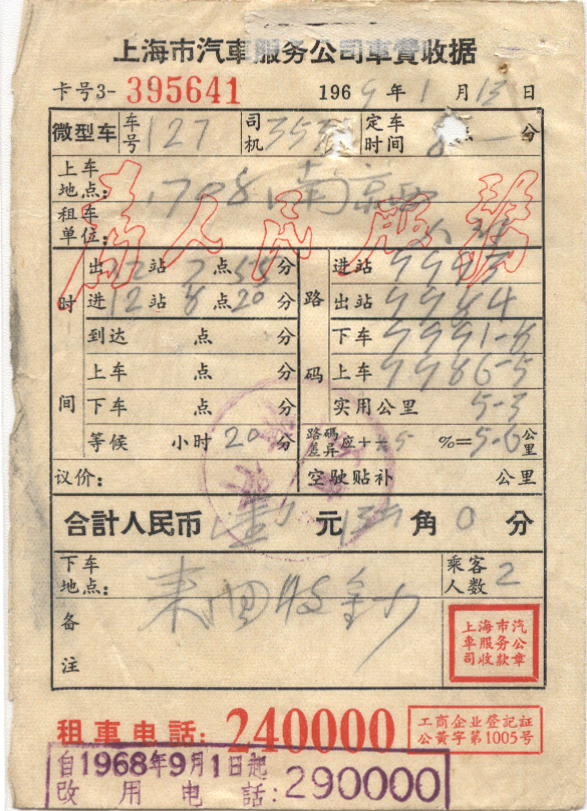 上海市汽車服务公司車費收据
卡号3- 395641 1969年1月13日
微型车 车号 127 司机 353 定车时间 8点 一分
上车地点: 1708,南京西
为人民服务
租车单位:
时间 出12站 7点55分 路码 进站 9993
进12站 8点20分 出站 9984
到达 点 分 下车 9991-8
上车 点 分 上车 9986-5
下车 点 分 实用公里 5-3
等候 小时 20分 路碼差异应+÷5%=5-6公里
议价: 空驶贴补 公里
合計人民币 元 角0分
下车地点: 来回 乘客人数 2
备注
上海市汽
車服务公
司收款章
租車电話: 240000 工商企业登記証
公黄字第1005号
自1968年9月1日起
改用电話: 290000